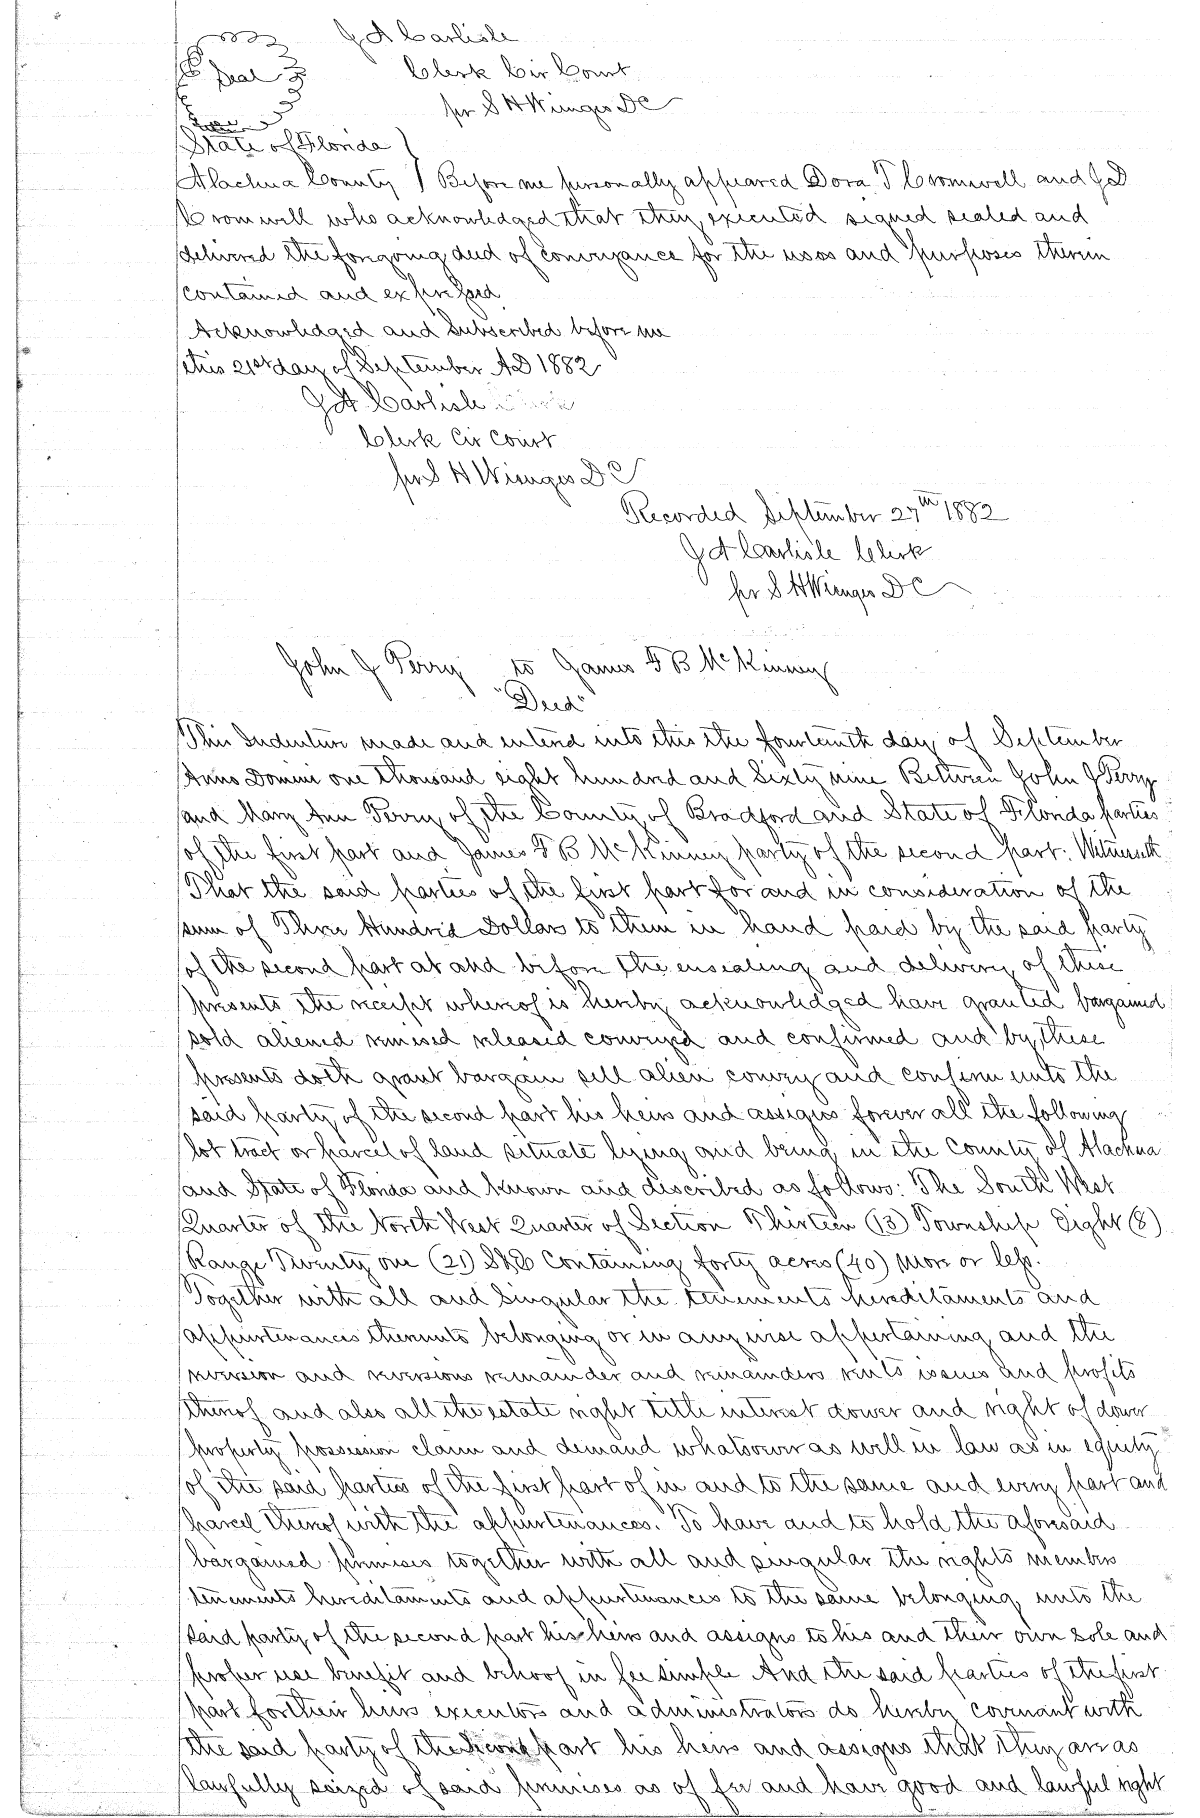 J A Carlisle
Seal
Clerk Cir Court
per S H Wienges DC
State of Florida
Alachua County } Before me personally appeared Dora T Cromwell and J D
Cromwell who acknowledged that they executed signed sealed and
delivered the foregoing deed of conveyance for the uses and purposes therein
contained and expressed
Acknowledged and Subscribed before me
this 21st day of September AD 1882
J A Carlisle
Clerk Cir Court
per S H Wienges DC
Recorded September 27th 1882
J A Carlisle Clerk
per S H Wienges DC
John J Perry to James F B McKinney
"Deed"
This Indenture made and entered into this the fourteenth day of September
Anno Domini one thousand eight hundred and Sixty nine Between John J Perry
and Mary Ann Perry of the County of Bradford and State of Florida parties
of the first part and James F B McKinney party of the second part: Witnesseth
That the said parties of the first part for and in consideration of the
sum of Three Hundred Dollars to them in hand paid by the said party
of the second part at and before the ensealing and delivery of these
presents the receipt whereof is hereby acknowledged have granted bargained
sold aliened remised released conveyed and confirmed and by these
presents doth grant bargain sell alien convey and confirm unto the
said party of the second part his heirs and assigns forever all the following
lot tract or parcel of land situate lying and being in the County of Alachua
and State of Florida and known and described as follows: The South West
Quarter of the North West Quarter of Section Thirteen (13) Township Eight (8)
Range Twenty one (21) S&E Containing forty acres (40) more or less.
Together with all and Singular the tenements hereditaments and
appurtenances thereunto belonging or in anywise appertaining and the
reversion and reversions remainder and remainders rents issues and profits
thereof and also all the estate right title interest dower and right of dower
property possession claim and demand whatsoever as well in law as in equity
of the said parties of the first part of in and to the same and every part and
parcel thereof with the appurtenances. To have and to hold the aforesaid
bargained premises together with all and singular the rights members
tenements hereditaments and appurtenances to the same belonging unto the
said party of the second part his heirs and assigns to his and their own sole and
proper use benefit and behoof in fee simple And the said parties of the first
part for their heirs executors and administrators do hereby covenant with
the said party of the second part his heirs and assigns that they are as
lawfully seized of said premises as of fee and have good and lawful right